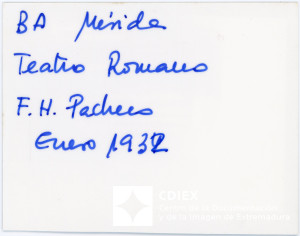 BA Mérida
Teatro Romano
F. H. Pacheco
Enero 1932
CDIEX